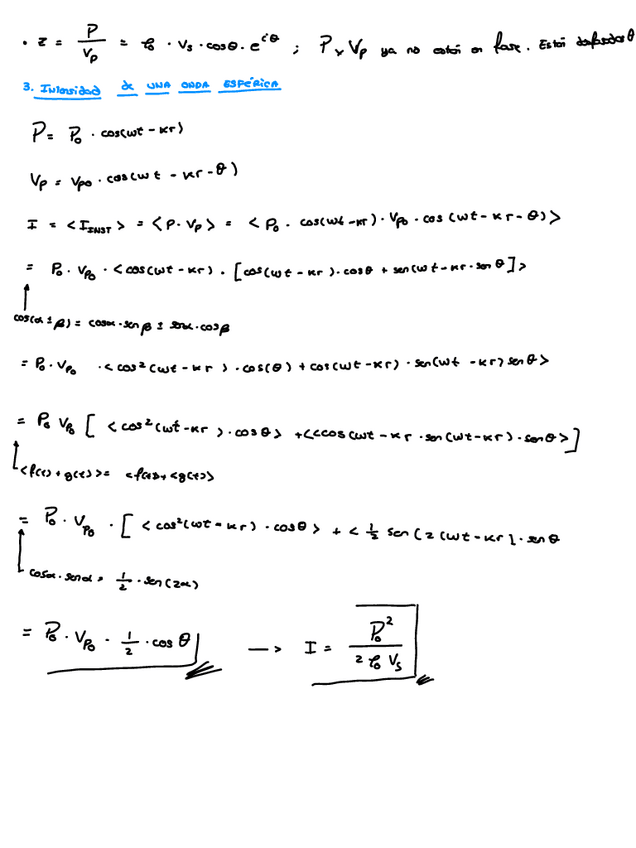 . z = P / Vp = ρ₀ · Vs · cosθ · e^{iθ} ; P y Vp ya no están en fase. Están desfasados θ
3. Intensidad de UNA ONDA ESPÉRICA
P = P₀ · cos(wt - kr)
Vp = Vp₀ · cos(wt - kr - θ)
I = <I_INST> = <P · Vp> = <P₀ · cos(wt - kr) · Vp₀ · cos (wt - kr - θ)>
= P₀ · Vp₀ · <cos(wt - kr) · [cos(wt - kr) · cosθ + sen(wt - kr · senθ]>
cos(α ± β) = cosα · senβ ± senα · cosβ
= P₀ · Vp₀ · <cos²(wt - kr) · cos(θ) + cos(wt - kr) · sen(wt - kr) senθ>
= P₀ Vp₀ [ <cos²(wt - kr) · cosθ> + <<cos(wt - kr · sen(wt - kr) · senθ>]
<f(t) + g(t)> = <f(t)> + <g(t)>
= P₀ · Vp₀ · [ <cos²(wt - kr) · cosθ> + < 1/2 sen(2(wt - kr] · senθ
cosα · senα = 1/2 · sen(2α)
= P₀ · Vp₀ · 1/2 · cosθ —> I = P₀² / 2 ρ₀ Vs